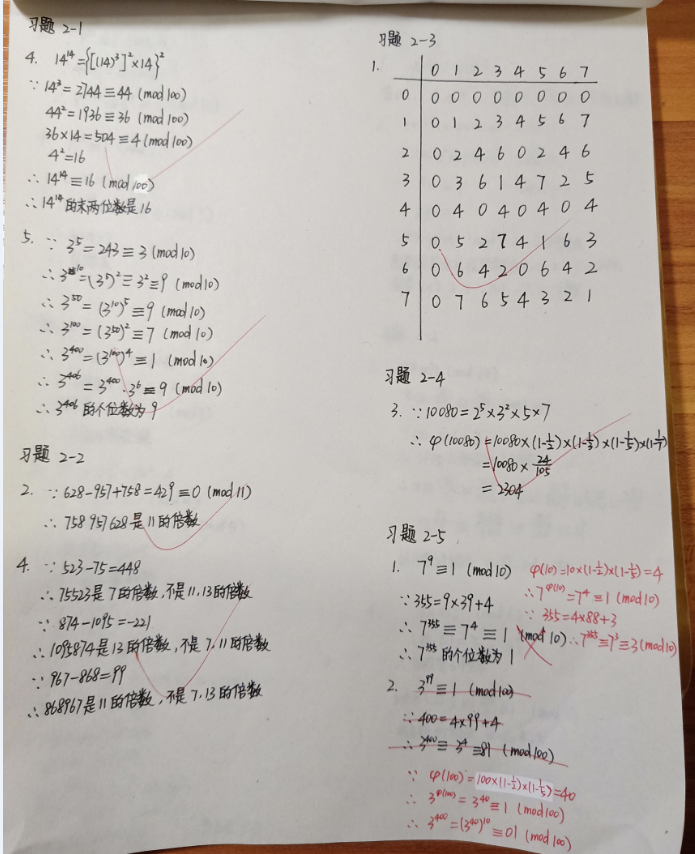 习题 2-1
4. 14¹⁴={[(14)³]²×14}²
∵ 14³=2744≡44 (mod 100)
44²=1936≡36 (mod 100)
36×14=504≡4 (mod 100)
4²=16
∴ 14¹⁴≡16 (mod 100)
∴ 14¹⁴的末两位数是16
5. ∵ 3⁵=243≡3 (mod 10)
∴ 3¹⁰=(3⁵)²≡3²≡9 (mod 10)
∴ 3⁵⁰=(3¹⁰)⁵≡9 (mod 10)
∴ 3¹⁰⁰=(3⁵⁰)²≡7 (mod 10)
∴ 3⁴⁰⁰=(3¹⁰⁰)⁴≡1 (mod 10)
∴ 3⁴⁰⁶=3⁴⁰⁰·3⁶≡9 (mod 10)
∴ 3⁴⁰⁶的个位数为9
习题 2-2
2. ∵ 628-957+758=429≡0 (mod 11)
∴ 758957628是11的倍数
4. ∵ 523-75=448
∴ 75523是7的倍数,不是11,13的倍数
∵ 874-1095=-221
∴ 1095874是13的倍数,不是7,11的倍数
∵ 967-868=99
∴ 868967是11的倍数,不是7,13的倍数
习题 2-3
1.
0 1 2 3 4 5 6 7
0 0 0 0 0 0 0 0 0
1 0 1 2 3 4 5 6 7
2 0 2 4 6 0 2 4 6
3 0 3 6 1 4 7 2 5
4 0 4 0 4 0 4 0 4
5 0 5 2 7 4 1 6 3
6 0 6 4 2 0 6 4 2
7 0 7 6 5 4 3 2 1
习题 2-4
3. ∵ 10080=2⁵×3²×5×7
∴ φ(10080)=10080×(1-1/2)×(1-1/3)×(1-1/5)×(1-1/7)
=10080×24/105
=2304
习题 2-5
1. 7⁹≡1 (mod 10)
φ(10)=10×(1-1/2)×(1-1/5)=4
∴ 7^φ(10)=7⁴≡1 (mod 10)
∵ 355=9×39+4
∵ 355=4×88+3
∴ 7³⁵⁵≡7⁴≡1 (mod 10)
∴ 7³⁵⁵≡7³≡3 (mod 10)
∴ 7³⁵⁵的个位数为1
2. 3⁹⁹≡1 (mod 100)
∵ 400=4×99+4
∴ 3⁴⁰⁰≡3⁴≡81 (mod 100)
∵ φ(100)=100×(1-1/2)×(1-1/5)=40
∴ 3^φ(100)=3⁴⁰≡1 (mod 100)
∴ 3⁴⁰⁰=(3⁴⁰)¹⁰≡01 (mod 100)